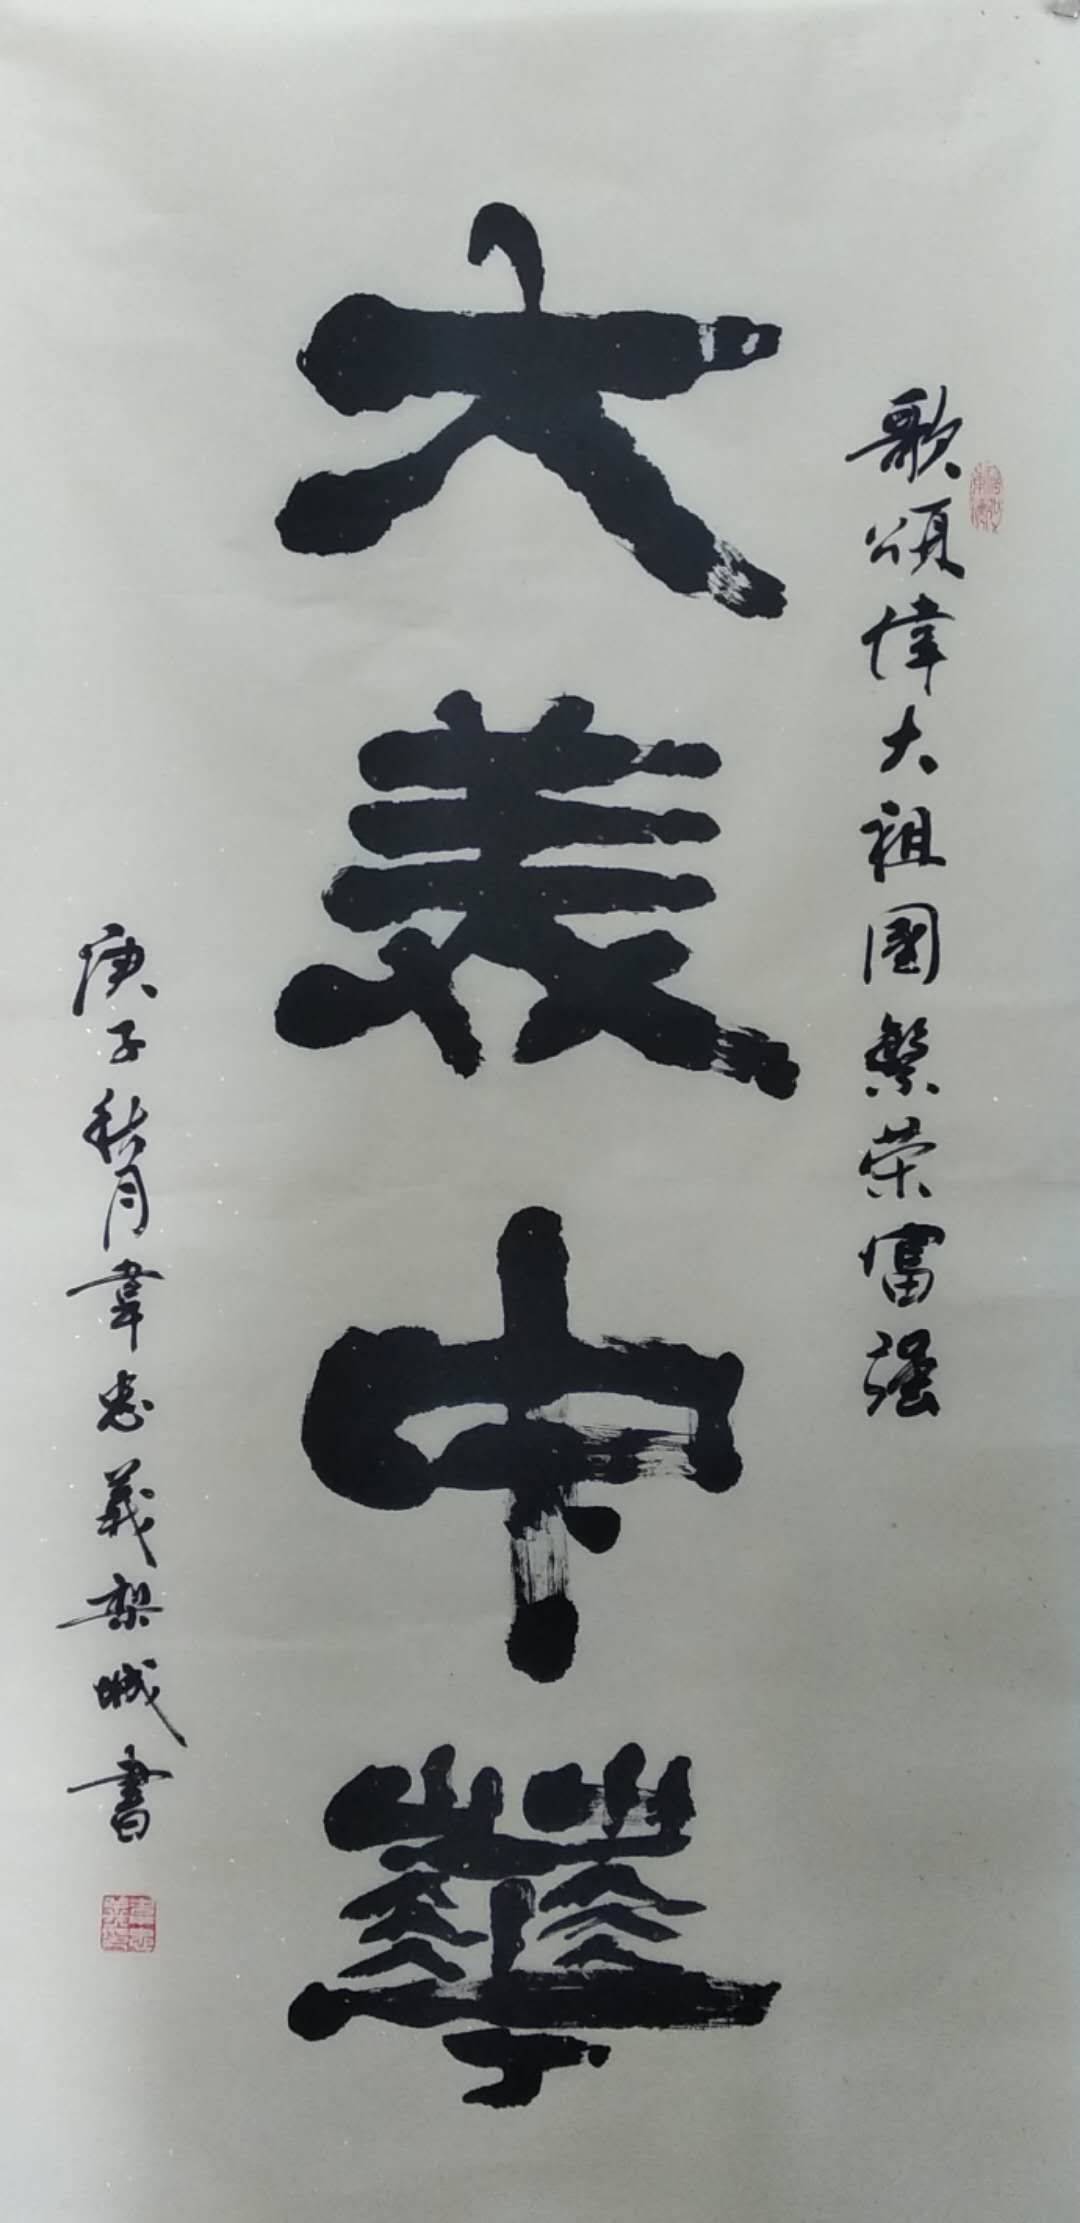 歌頌偉大祖國繁荣富强
大美中華
庚子秋月韋忠義梨城書